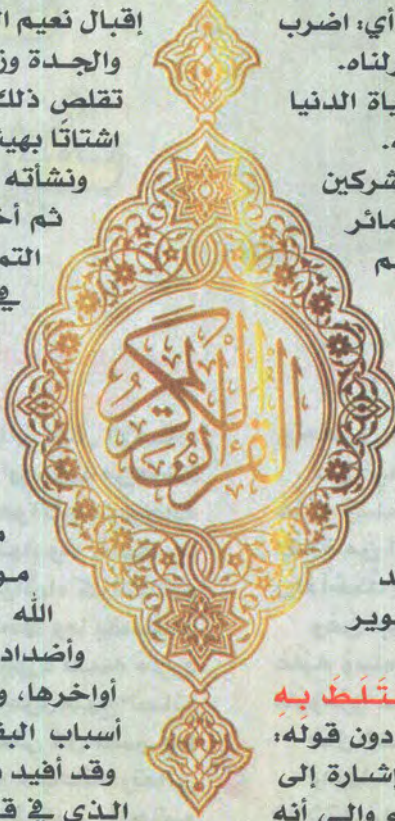 أي: اضرب
زلناه.
ياة الدنيا
شركين
مائر
م
د
وير
ختَلَطَ بِهِ
دون قوله:
إشارة إلى
و والى أنه
القرآن الكريم
إقبال نعيم ال
والجدة وز
تقلص ذلك
اشتاتًا بهيئ
ونشأته
ثم أخ
التم
في
مو
الله
وأضداد
أواخرها، و
أسباب البق
وقد أفيد م
الذي في ق